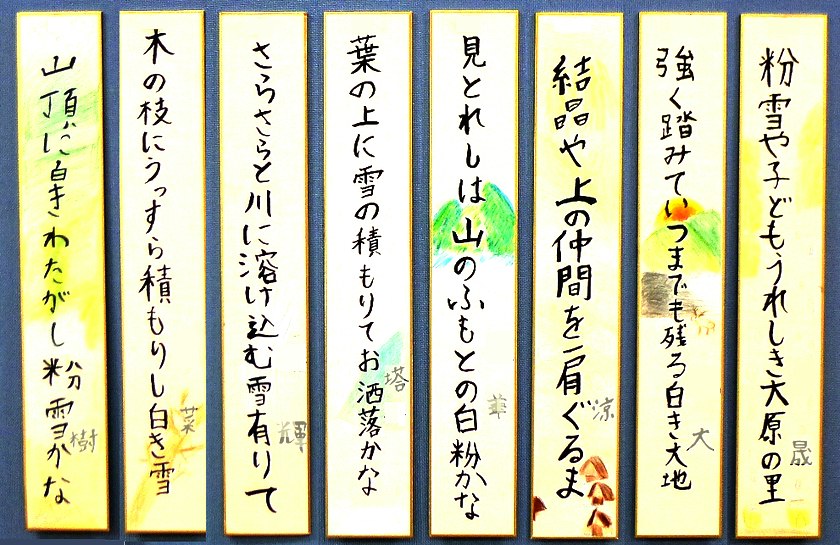 粉雪や子どもうれしき大原の里
晟
強く踏みていつまでも残る白き大地
大
結晶や上の仲間を肩ぐるま
涼
見とれしは山のふもとの白粉かな
華
葉の上に雪の積もりてお洒落かな
塔
さらさらと川に溶け込む雪有りて
輝
木の枝にうっすら積もりし白き雪
菜
山頂に白きわたがし粉雪かな
樹